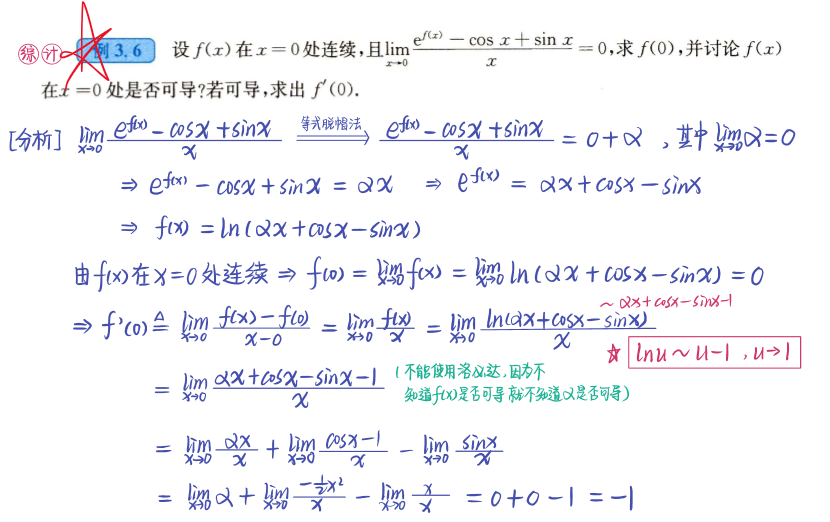 综 计 例 3.6 设 f(x) 在 x=0 处连续,且 lim_{x→0} (e^{f(x)} - cos x + sin x)/x = 0,求 f(0),并讨论 f(x)
在 x=0 处是否可导?若可导,求出 f′(0).
[分析] lim_{x→0} (e^{f(x)} - cosx + sinx)/x ⟹(等式脱帽法) (e^{f(x)} - cosx + sinx)/x = 0+α ,其中 lim_{x→0} α = 0
⇒ e^{f(x)} - cosx + sinx = αx ⇒ e^{f(x)} = αx + cosx - sinx
⇒ f(x) = ln(αx + cosx - sinx)
由 f(x) 在 x=0 处连续 ⇒ f(0) = lim_{x→0} f(x) = lim_{x→0} ln(αx + cosx - sinx) = 0
~ αx + cosx - sinx - 1
⇒ f'(0) ≜ lim_{x→0} (f(x) - f(0))/(x - 0) = lim_{x→0} f(x)/x = lim_{x→0} ln(αx + cosx - sinx)/x
☆ lnu ~ u-1 , u→1
= lim_{x→0} (αx + cosx - sinx - 1)/x (不能使用洛必达,因为不
知道f(x)是否可导就不知道α是否可导)
= lim_{x→0} αx/x + lim_{x→0} (cosx - 1)/x - lim_{x→0} sinx/x
= lim_{x→0} α + lim_{x→0} (-½x²)/x - lim_{x→0} x/x = 0+0-1 = -1